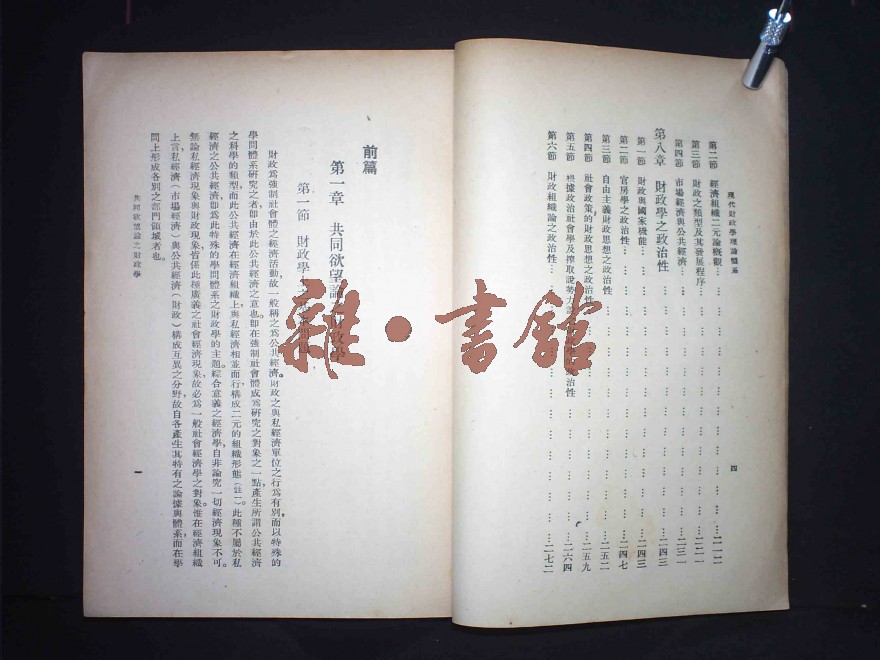 現代財政學理論體系
四
第二節 經濟組織二元論概觀……二一二
第三節 財政之類型及其發展程序……二二一
第四節 市場經濟與公共經濟……二三一
第八章 財政學之政治性……二四三
第一節 財政與國家機能……二四三
第二節 官房學之政治性……二四七
第三節 自由主義財政思想之政治性……二五二
第四節 社會政策的財政思想之政治性……二五九
第五節 根據政治社會學及搾取說 政治性……二六四
第六節 財政組織論之政治性……二七二
前篇
第一章 共同欲望論之財政學
第一節 財政學
財政爲強制社會體之經濟活動故一般稱之爲公共經濟。財政之與私經濟單位之行爲有別而以特殊的
學問體系硏究之者卽由於此公共經濟之意也。卽在強制社會體成爲硏究之對象之一點產生所謂公共經濟
之科學的類型而此公共經濟在經濟組織上與私經濟相並而行構成二元的組織形態(註一)。此種不屬於私
經濟之公共經濟卽爲此特殊的學問體系之財政學的主題。綜合意義之經濟學自非論究一切經濟現象不可。
無論私經濟現象與財政現象皆係此種廣義之社會經濟現象故必爲一般社會經濟學之對象。惟在經濟組織
上言私經濟(市場經濟)與公共經濟(財政)構成互異之分野故自各產生其特有之論據與體系而在學
問上形成各別之部門領域者也。
共同欲望論之財政學
一
雜·書館